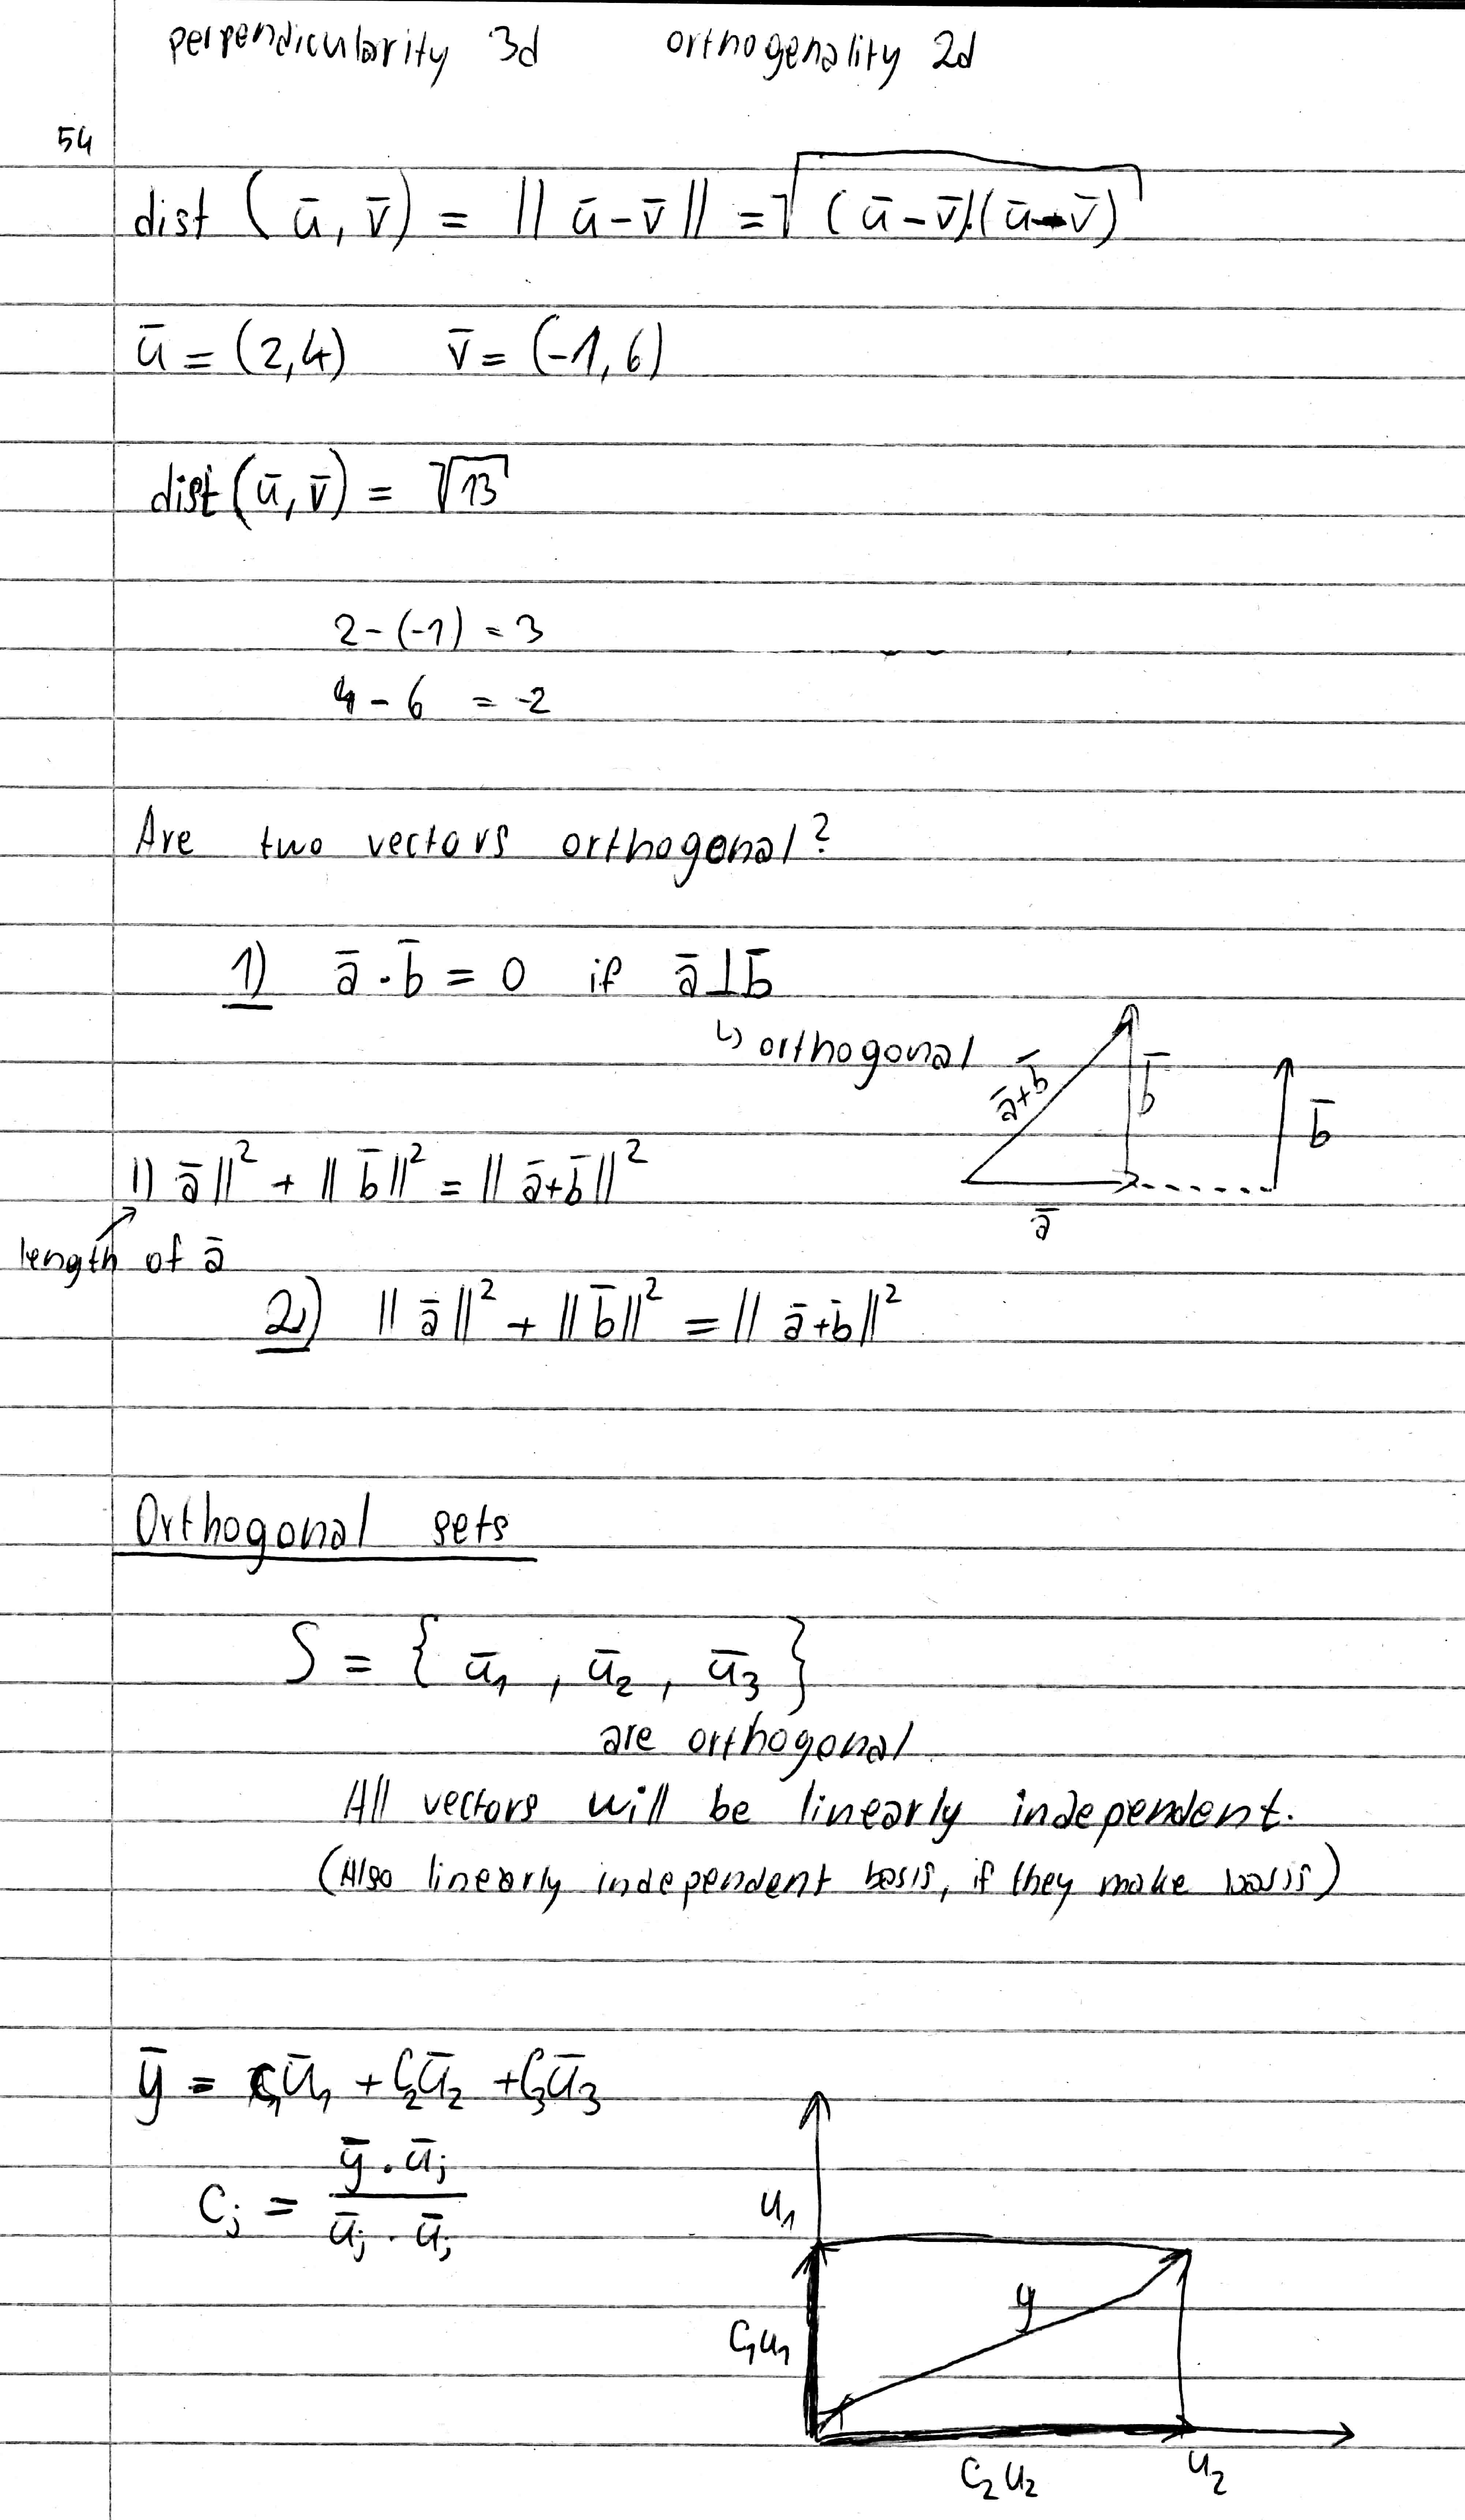 perpendicularity 3d orthogenality 2d
54
dist (ū, v̄) = || ū - v̄ || = √(ū - v̄).(ū - v̄)
ū = (2,4) v̄ = (-1,6)
dist (ū, v̄) = √13
2 - (-1) = 3
4 - 6 = -2
Are two vectors orthogonal?
1) ā · b̄ = 0 if ā ⊥ b̄
↳ orthogonal
ā+b̄ b̄ b̄
ā
||ā||² + ||b̄||² = ||ā+b̄||²
length of ā
2) ||ā||² + ||b̄||² = ||ā+b̄||²
Orthogonal sets
S = { ū₁ , ū₂ , ū₃ }
are orthogonal
All vectors will be linearly independent.
(Also linearly independent basis, if they make basis)
ȳ = c₁ū₁ + c₂ū₂ + c₃ū₃
cⱼ = ȳ · ūⱼ / ūⱼ · ūⱼ
u₁
y
c₁u₁
c₂u₂ u₂